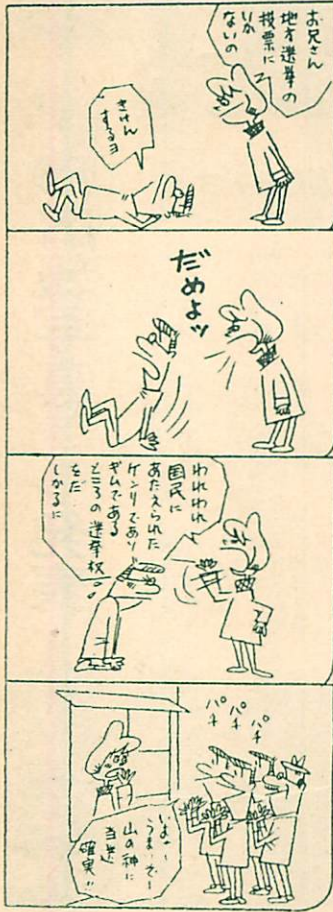 お兄さん
地方選挙の
投票に
いか
ないの
きけん
するヨ
だめよッ
われわれ
国民に
あたえられた
ケンリであり
ギムである
ところの選挙权
をだ
しかるに
パチ
パチ
パチ
いよゥ〜
うまいでー
山の神に
当選
確実!!